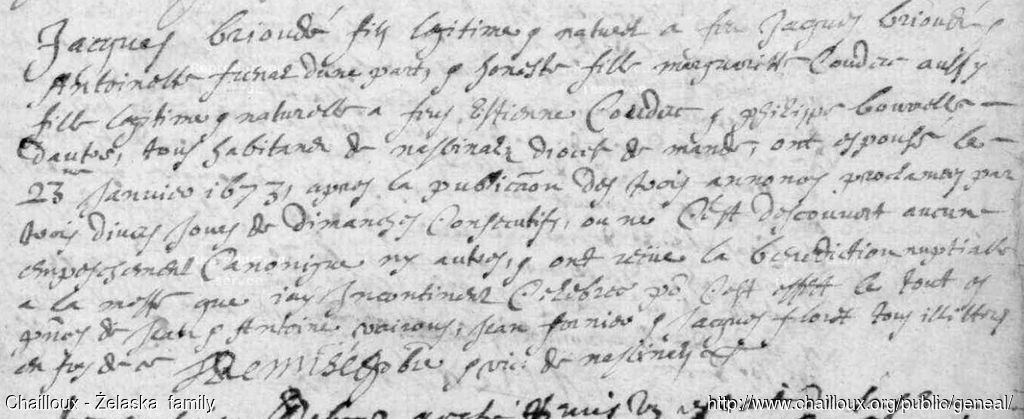 Jacques brioudé fils legitime & naturel a feu Jacques brioudé &
Anthoinette d'une part, & honeste fille margueritte Coudec aussy
fille legitime & naturelle a feus Estienne Coudec & philippe
dautre, tous habitans de nasbinalz diocese de mande, ont espousé le
23me Janvier 1673, apres la publicaon des trois annonces proclamees par
trois divers Jours de dimanches Consecutifs, ou ne s'est descouvert aucun
empeschement Canonique ny autres, & ont reçue la benediction nuptialle
a la messe que iay Incontinent Celebree po cest effect le tout es
pnces de Jean & Antoine vairous, Jean fornier & Jacques tous illittres
en foy de ce pbre & vic de nasbinalz
Chailloux - Żelaska family
http://www.chailloux.org/public/geneal/